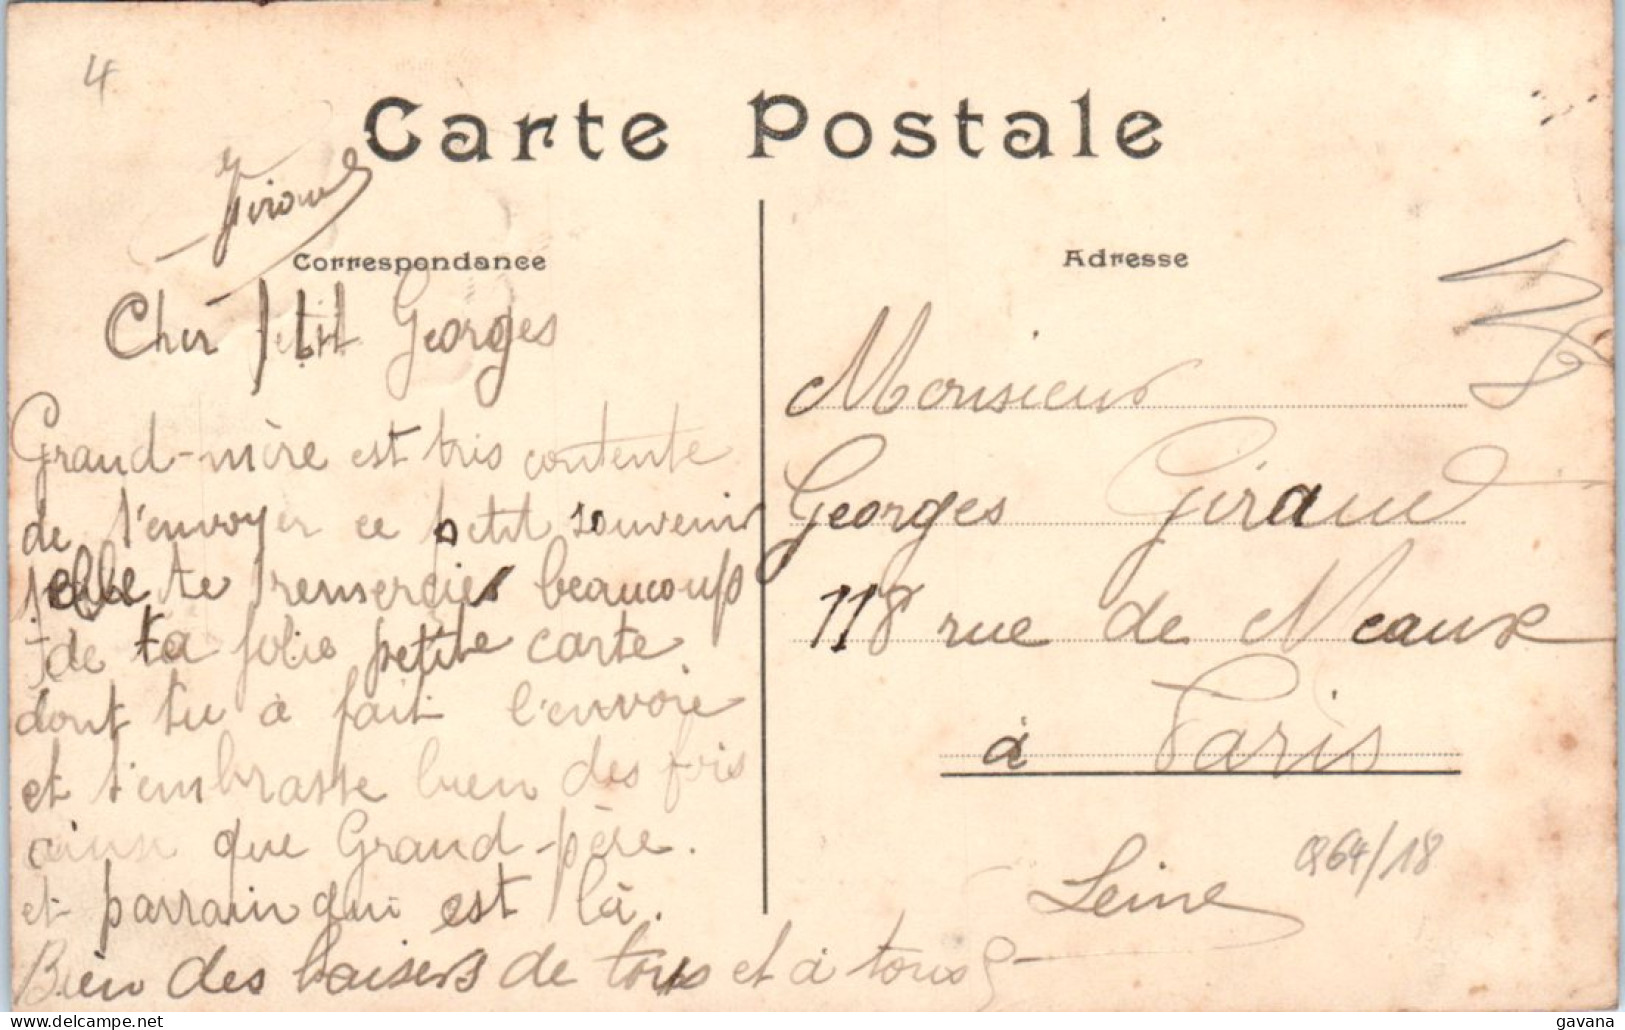 4
Carte Postale
Giraud
Correspondance
Cher petit Georges
Grand-mère est très contente
de t'envoyer ce petit souvenir
elle te remercier beaucoup
de ta jolie petite carte
dont tu à fait l'envoie
et t'embrasse bien des fois
ainsi que Grand-père.
et parrain qui est là.
Bien des baisers de tous et à tous
Adresse
Monsieur
Georges Giraud
118 rue de Meaux
à Paris
Seine
/18
delcampe.net
gavana